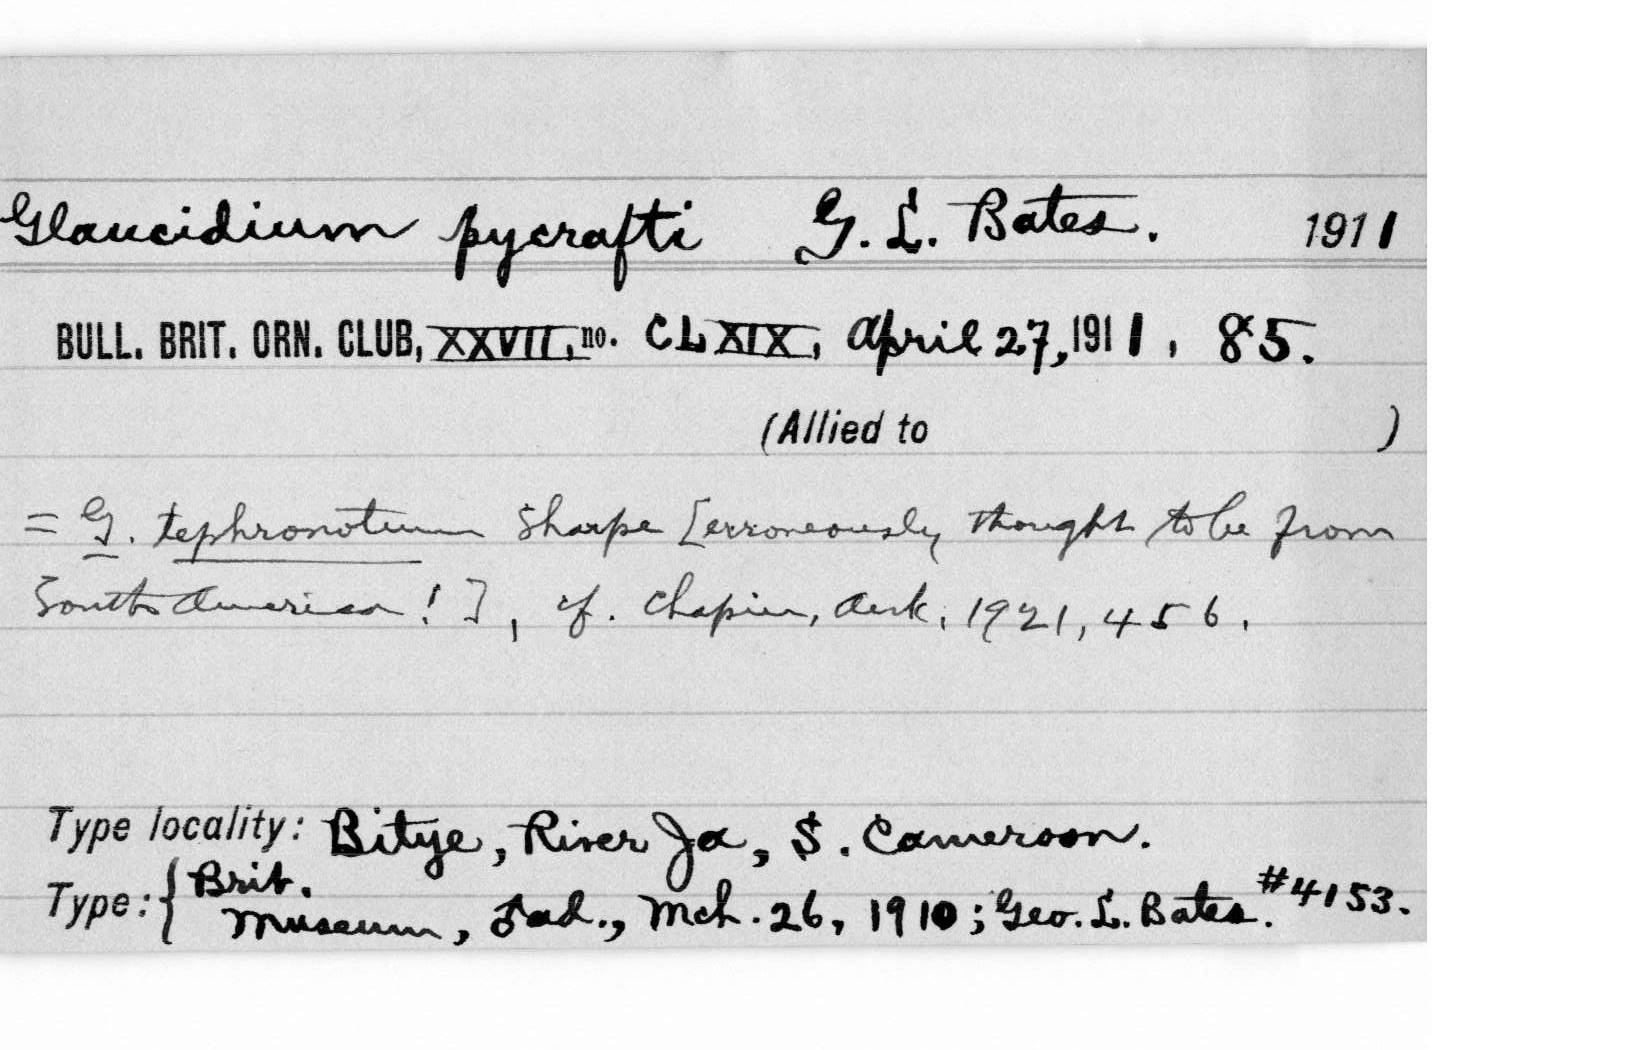 Glaucidium pycrafti G. L. Bates. 1911
BULL. BRIT. ORN. CLUB, XXVII, no. CLXIX, April 27, 1911, 85.
(Allied to )
= G. tephronotum Sharpe [erroneously thought to be from
South America!], cf. Chapin, Auk, 1921, 456.
Type locality: Bitye, River Ja, S. Cameroon.
Type: { Brit.
Museum, ♂ ad., Mch. 26, 1910; Geo. L. Bates. #4153.